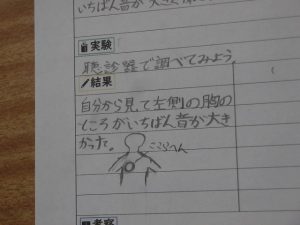 いちばん音が大き
実験
聴診器で調べてみよう。
結果
自分から見て左側の胸の
ところがいちばん音が大き
かった。
ここらへん
考察